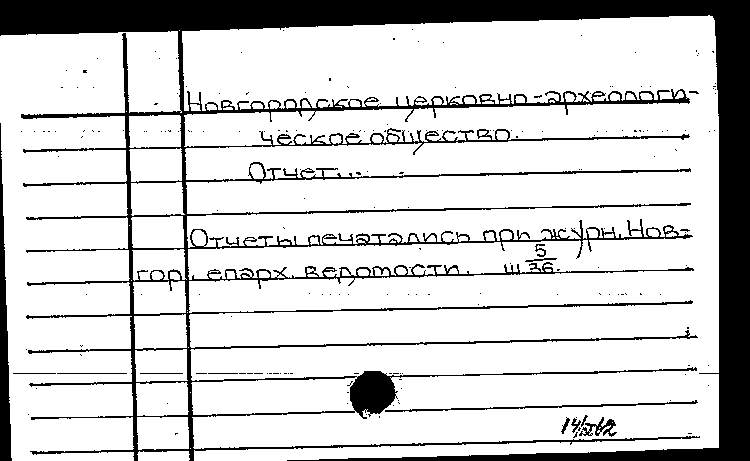 Новгородское церковно-археологи-
ческое общество.
Отчет...
Отчеты печатались при журн. Нов-
гор. епарх. ведомости. ш 5/36.